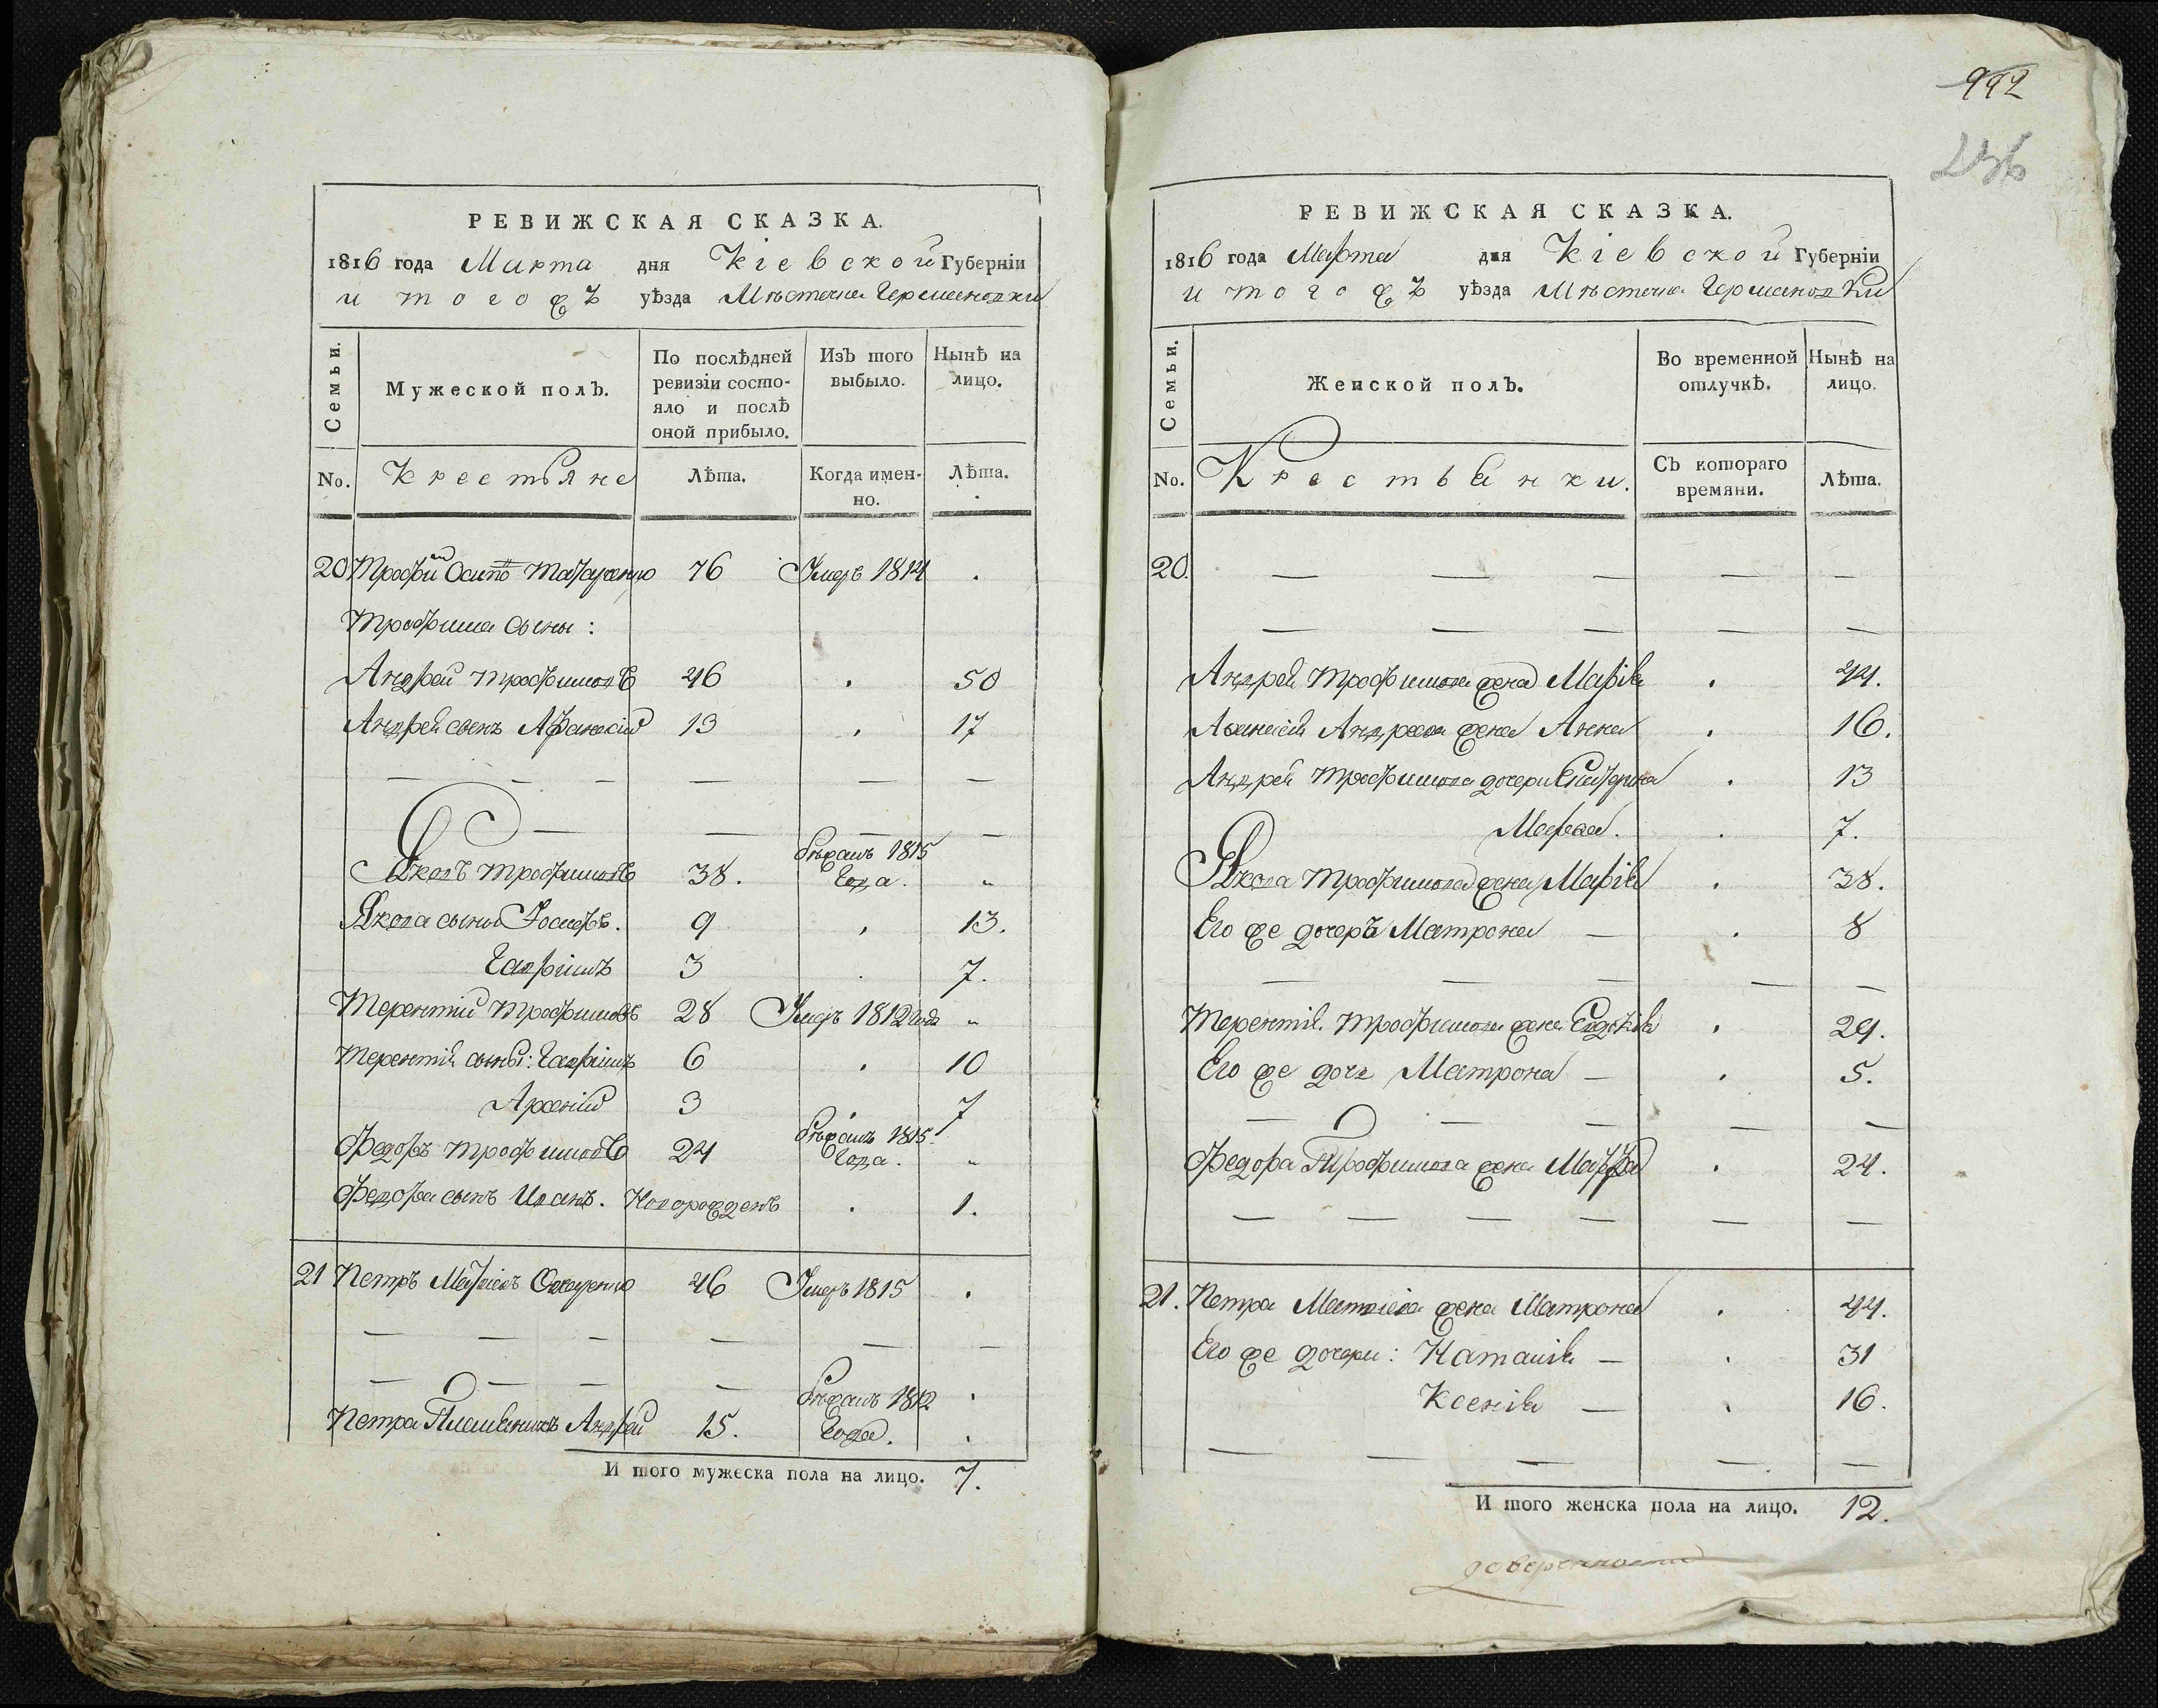 РЕВИЖСКАЯ СКАЗКА.
1816 года Марта дня Кіевской Губерніи
и тогожъ уѣзда Мѣстечка Германовки
Семьи.
Мужеской полЪ.
По послѣдней
ревизіи состо-
яло и послѣ
оной прибыло.
ИзЪ того
выбыло.
НынѢ на
лицо.
No.
Крестьяне
ЛѢта.
Когда имен-
но.
ЛѢта.
20 Трофим Осипо Татаренко 76 Умеръ 1814
Трофима сыны:
Андрей Трофимовъ 46 50
Андрея сынъ Афанасій 13 17
Яковъ Трофимовъ 38. бѣжалъ 1815 Года.
Якова сыны Іосифъ. 9 13.
Гаврілъ 3 7.
Терентій Трофимовъ 28 Умеръ 1812 Года
Терентія сыны: Гаврілъ 6 10
Арсеній 3 7
Федоръ Трофимовъ 24 бѣжалъ 1815. Года.
Федора сынъ Иванъ. Новорожденъ 1.
21 Петръ Матвіевъ 46 Умеръ 1815
Петра Племѣникъ Андрей 15. бѣжалъ 1812 Года.
И того мужеска пола на лицо. 7.
992
236
РЕВИЖСКАЯ СКАЗКА.
1816 года Марта дня Кіевской Губерніи
и тогожъ уѣзда Мѣстечка Германовки
Семьи.
Женской полЪ.
Во временной
отлучкѢ.
НынѢ на
лицо.
No.
Крестьянки.
СЪ котораго
времяни.
ЛѢта.
20.
Андрея Трофимова жена Марія 44.
Афанасія Андреева жена Анна 16.
Андрея Трофимова дочери Екатерина 13
7.
Якова Трофимова жена Марія 38.
Его же дочеръ Матрона 8
Терентія Трофимова жена Евдокія 29.
Его же дочь Матрона 5.
Федора Трофимова жена Марфа 24.
21. Петра Матвіева жена Матрона 44.
Его же дочери: Наталія 31
Ксенія 16.
И того женска пола на лицо. 12.
доверенности